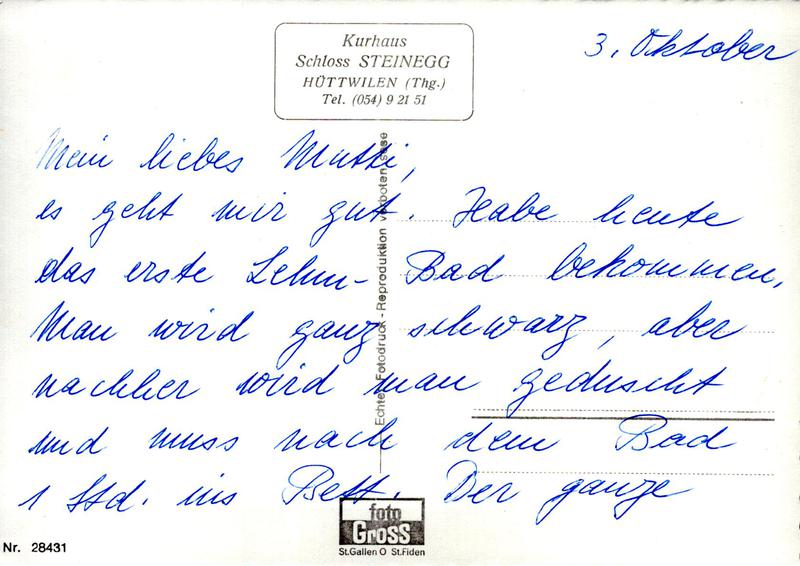 Kurhaus
Schloss STEINEGG
HÜTTWILEN (Thg.)
Tel. (054) 9 21 51
3. Oktober
Mein liebes Mutti,
es geht mir gut. Habe heute
das erste Lehm-Bad bekommen.
Man wird ganz schwarz, aber
nachher wird man geduscht
und muss nach dem Bad
1 Std. ins Bett. Der ganze
Echter Fotodruck - Reproduktion verboten
foto
Gross
St.Gallen O St.Fiden
Nr. 28431